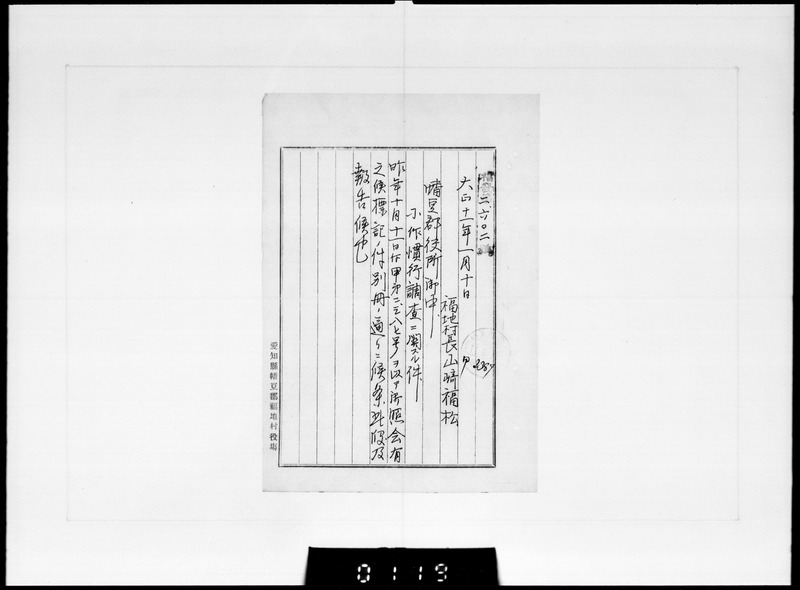 二、六〇二
大正十一年一月十日
福地村長山崎福松
甲 2387
幡豆郡役所御中
小作慣行調査ニ関スル件
昨年十月十一日付甲第二、三八七号ヲ以テ御照会有
之候標記ノ件別冊ノ通リニ候条此段及
報告候也
愛知縣幡豆郡福地村役場
0119